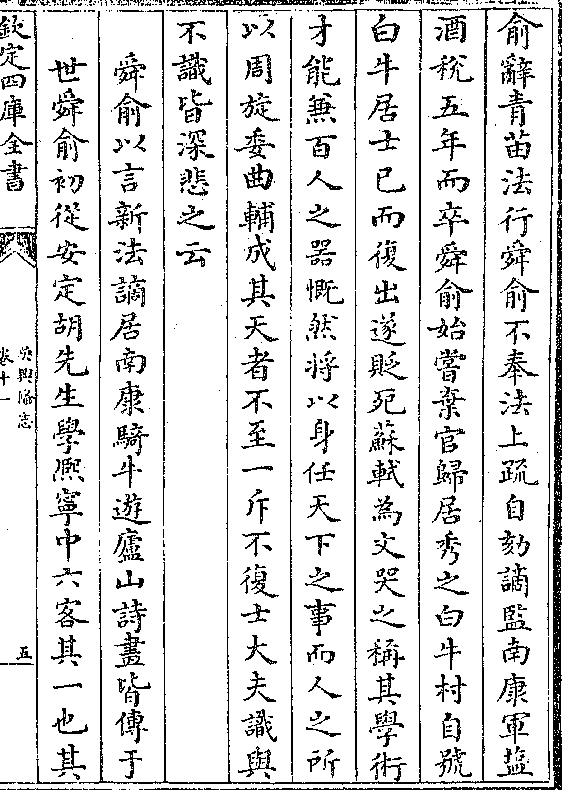 俞辭青苗法行舜俞不奉法上疏自劾謫監南康軍鹽
酒稅五年而卒舜俞始嘗棄官歸居秀之白牛村自號
白牛居士已而復出遂貶死蘇軾為文哭之稱其學術
才能兼百人之器慨然將以身任天下之事而人之所
以周旋委曲輔成其天者不至一斥不復士大夫識與
不識皆深悲之云
舜俞以言新法謫居南康騎牛遊廬山詩畫皆傳于
世舜俞初從安定胡先生學熈寧中六客其一也其
欽定四庫全書
吳興備志
卷十一
五